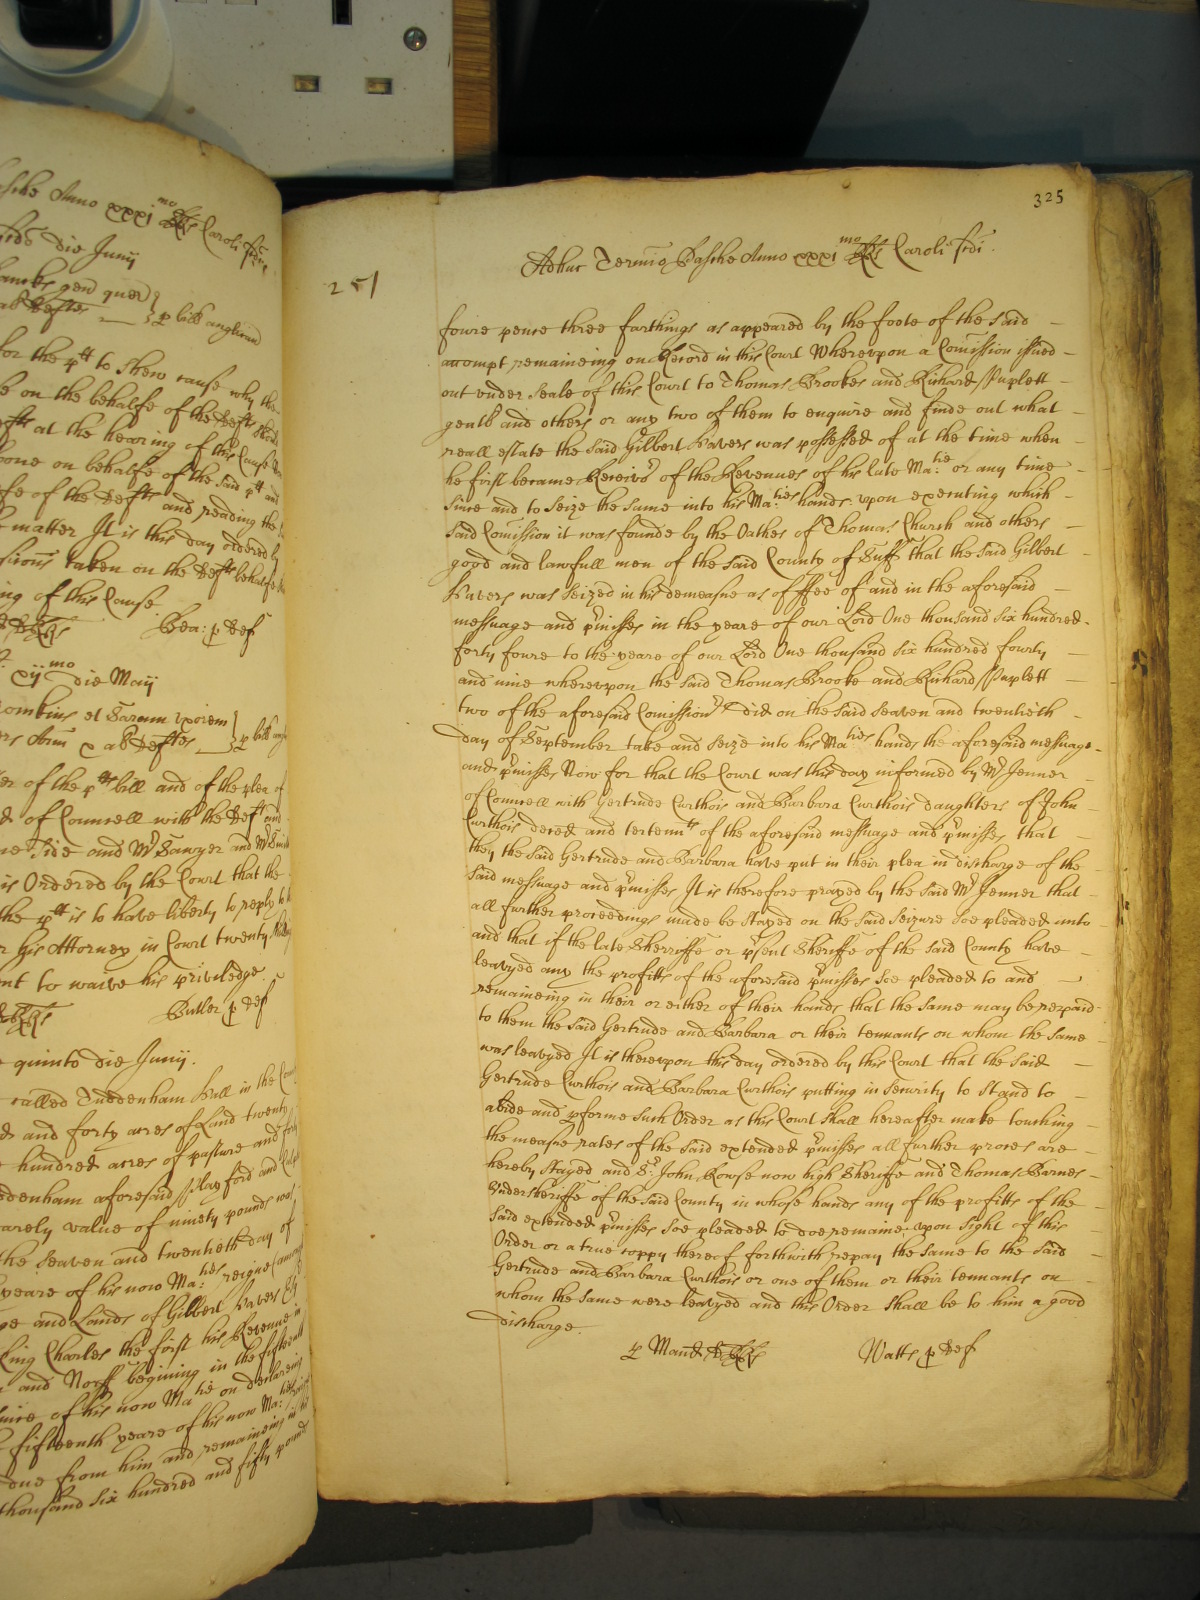 asche Anno xxxi mo RRs Caroli scdi
die Junij
gen quer
Defts p bill anglican
for the ptt to shew cause why the
e on the behalfe of the Defts
efts at the hearing of this Cause
one on behalfe of the said ptt and
fe of the Defts and reading the
matter It is this day ordered by
taken on the Defts behalfe
ing of this Cause
Bea: p Def
xij mo die Maij
ombins et Saram uxorem
als Defts p bill
er of the ptts bill and of the plea of
d of Councell with the Deft and
ne side and Mr Sawyer and Mr
is Ordered by the Court that the
the ptt is to have liberty to reply to
r his Attorney in Court twenty
nt to waive his priviledge.
Butler p Def
quinto die Junij.
called Tuddenham Hall in the
d and forty acres of Land twenty
hundred acres of pasture and
ddenham aforesaid Playford and
yearely value of ninety pounds was
the seaven and twentieth day of
yeare of his now Ma:ties reigne
pe and Lands of Gilbert Havers Esq
King Charles the first his Revenue in
and Norff begining in the fifteenth
of his now Matie on
fifteenth yeare of his now Ma:ties
due from him and remaineing in
thousand six hundred and fifty pounds
325
Adhuc Termio Pasche Anno xxxi mo RRs Caroli scdi.
251
foure pence three farthings as appeared by the foote of the said
accompt remaineing on Record in this Court Whereupon a Comission issued
out under Seale of this Court to Thomas Brookes and Richard Puplett
gents and others or any two of them to enquire and finde out what
reall estate the said Gilbert Havers was possessed of at the time when
he first became Receivr of the Revenues of his late Ma:tie or any time
since and to seize the same into his Ma:ties hands upon executing which
said Comission it was founde by the Oathes of Thomas Church and others
good and lawfull men of the said County of Suff that the said Gilbert
Havers was seized in his demeasne as of ffee of and in the aforesaid
messuage and pmisses in the yeare of our Lord One thousand six hundred
forty foure to the yeare of our Lord One thousand six hundred fourty
and nine whereupon the said Thomas Brooke and Richard Puplett
two of the aforesaid Comissionrs did on the said seaven and twentieth
day of September take and seize into his Ma:ties hands the aforesaid messuage
and pmisses Now for that the Court was this day informed by Mr Jenner
of Councell with Gertrude Curthois and Barbara Curthois daughters of John
Curthois deced and tertennts of the aforesaid messuage and pmisses that
they the said Gertrude and Barbara have put in their plea in discharge of the
said messuage and pmisses It is therefore prayed by the said Mr Jenner that
all further proceedings made be stayed on the said seizure soe pleaded unto
and that if the late Sherriffe or psent Sheriffe of the said County have
leavyed any the profitts of the aforesaid pmisses soe pleaded to and
remaineing in their or either of their hands that the same may be repaid
to them the said Gertrude and Barbara or their tennants on whom the same
was leavyed It is thereupon this day ordered by this Court that the said
Gertrude Curthois and Barbara Curthois putting in security to stand to
abide and pforme such Order as this Court shall hereafter make touching
the measne rates of the said extended pmisses all further proces are
hereby stayed and Sr. John Rowse now high Sheriffe and Thomas Barnes
Undersheriffe of the said County in whose hands any of the profitts of the
said extended pmisses soe pleaded to doe remaine upon sight of this
Order or a true coppy thereof forthwith repay the same to the said
Gertrude and Barbara Curthois or one of them or their tennants on
whom the same were leavyed and this Order shall be to him a good
discharge.
p Mand
Watts p Def